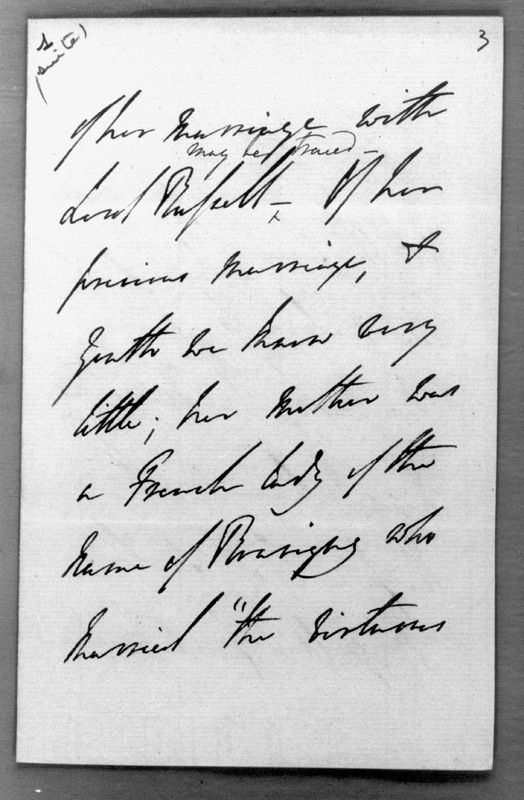 (suite)
3
of her marriage with
may be traced -
Lord Russell - Of her
previous marriage, &
youth we know very
little; her mother was
a French lady of the
name of
who
married "the virtuous